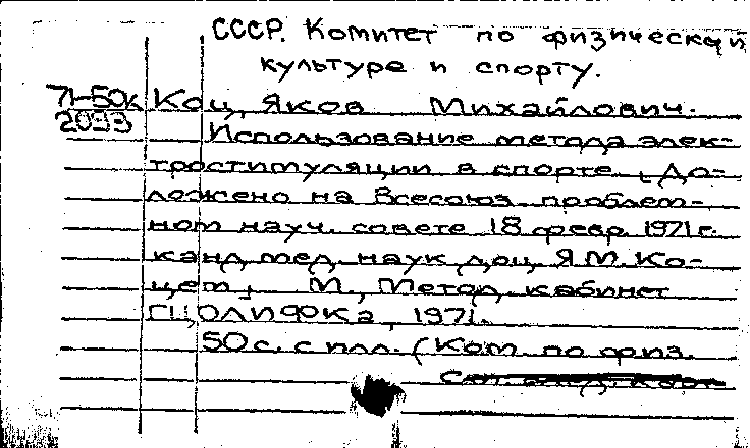 СССР. Комитет по физической
культуре и спорту.
71-50к Коц, Яков Михайлович.
2093
Использование метода элек-
тростимуляции в спорте. До-
ложено на Всесоюз. проблем-
ном науч. совете 18 февр. 1971 г.
канд. мед. наук доц. Я.М. Ко-
цем. М., Метод. кабинет
ГЦОЛИФКа, 1971.
50 с. с илл. (Ком. по физ.
См. след. карт.